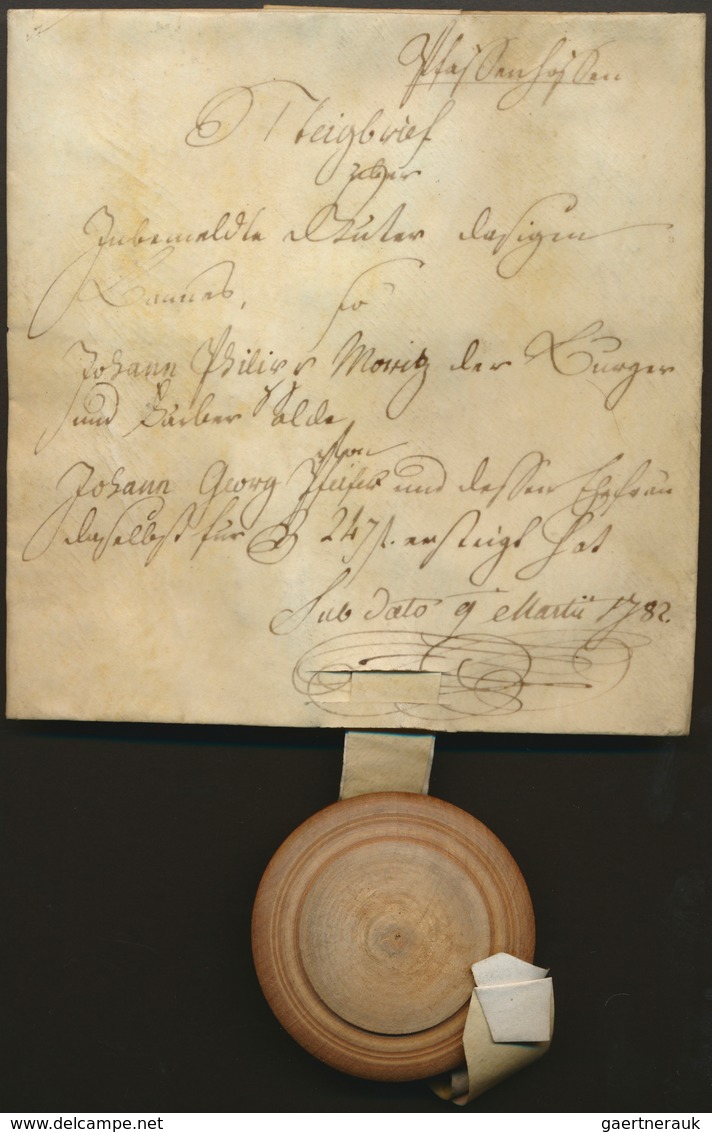 Pfaffenhoffen
Steigbrief
über
Inbemeldte Güter dasigen
Bannes, so
Johann Philipp Moritz der Burger
und Färber alda
von
Johann Georg Pfeifer und dessen Ehefrau
daselbst für 247 f. ersteigt hat
Sub dato 9 Martii 1782.
www.delcampe.net
gaertnerauk